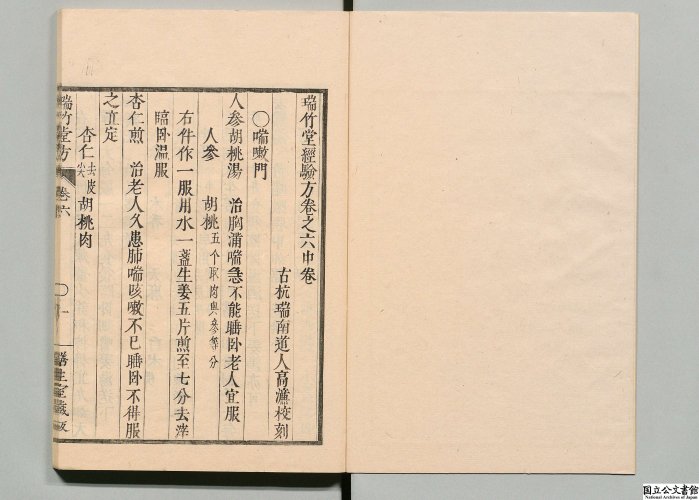 瑞竹堂經驗方卷之六中卷
古杭瑞南道人高濂校刻
〇喘嗽門
人參胡桃湯 治胸滿喘急不能睡卧老人宜服
人參 胡桃五个取肉與參等分
右件作一服用水一盞生姜五片煎至七分去滓
臨卧温服
杏仁煎 治老人久患肺喘咳嗽不已睡卧不得服
之立定
杏仁去皮尖 胡桃肉
瑞竹堂方 卷六 〇 一
国立公文書館
National Archives of Japan